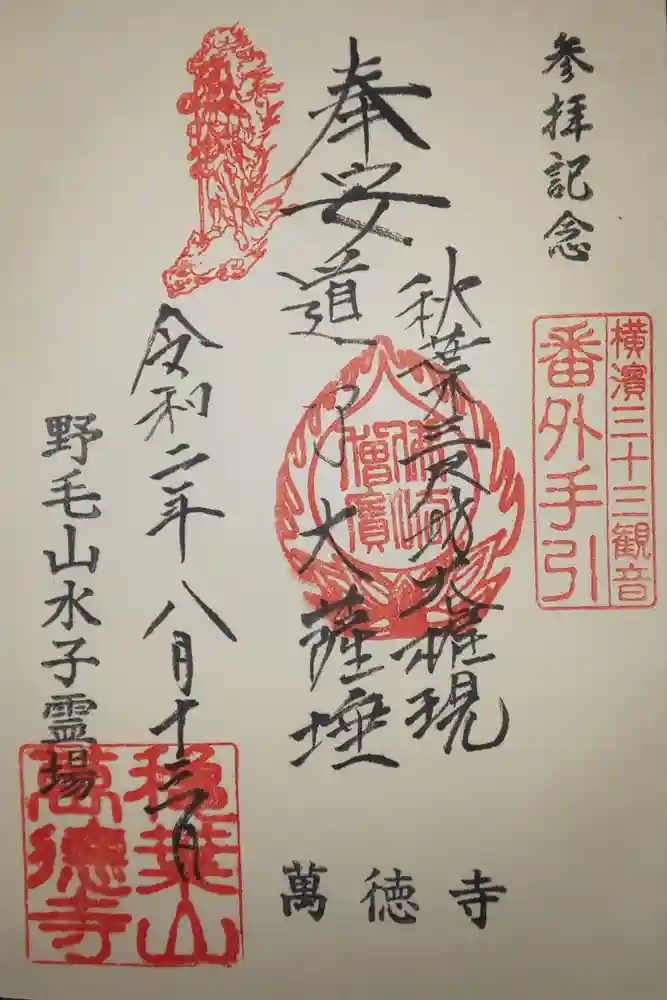 参拝記念
横濱三十三観音
番外手引
奉安
秋葉三尺坊大権現
道了大薩埵
令和二年八月十三日
野毛山水子霊場
萬徳寺
僧寳
萬德寺